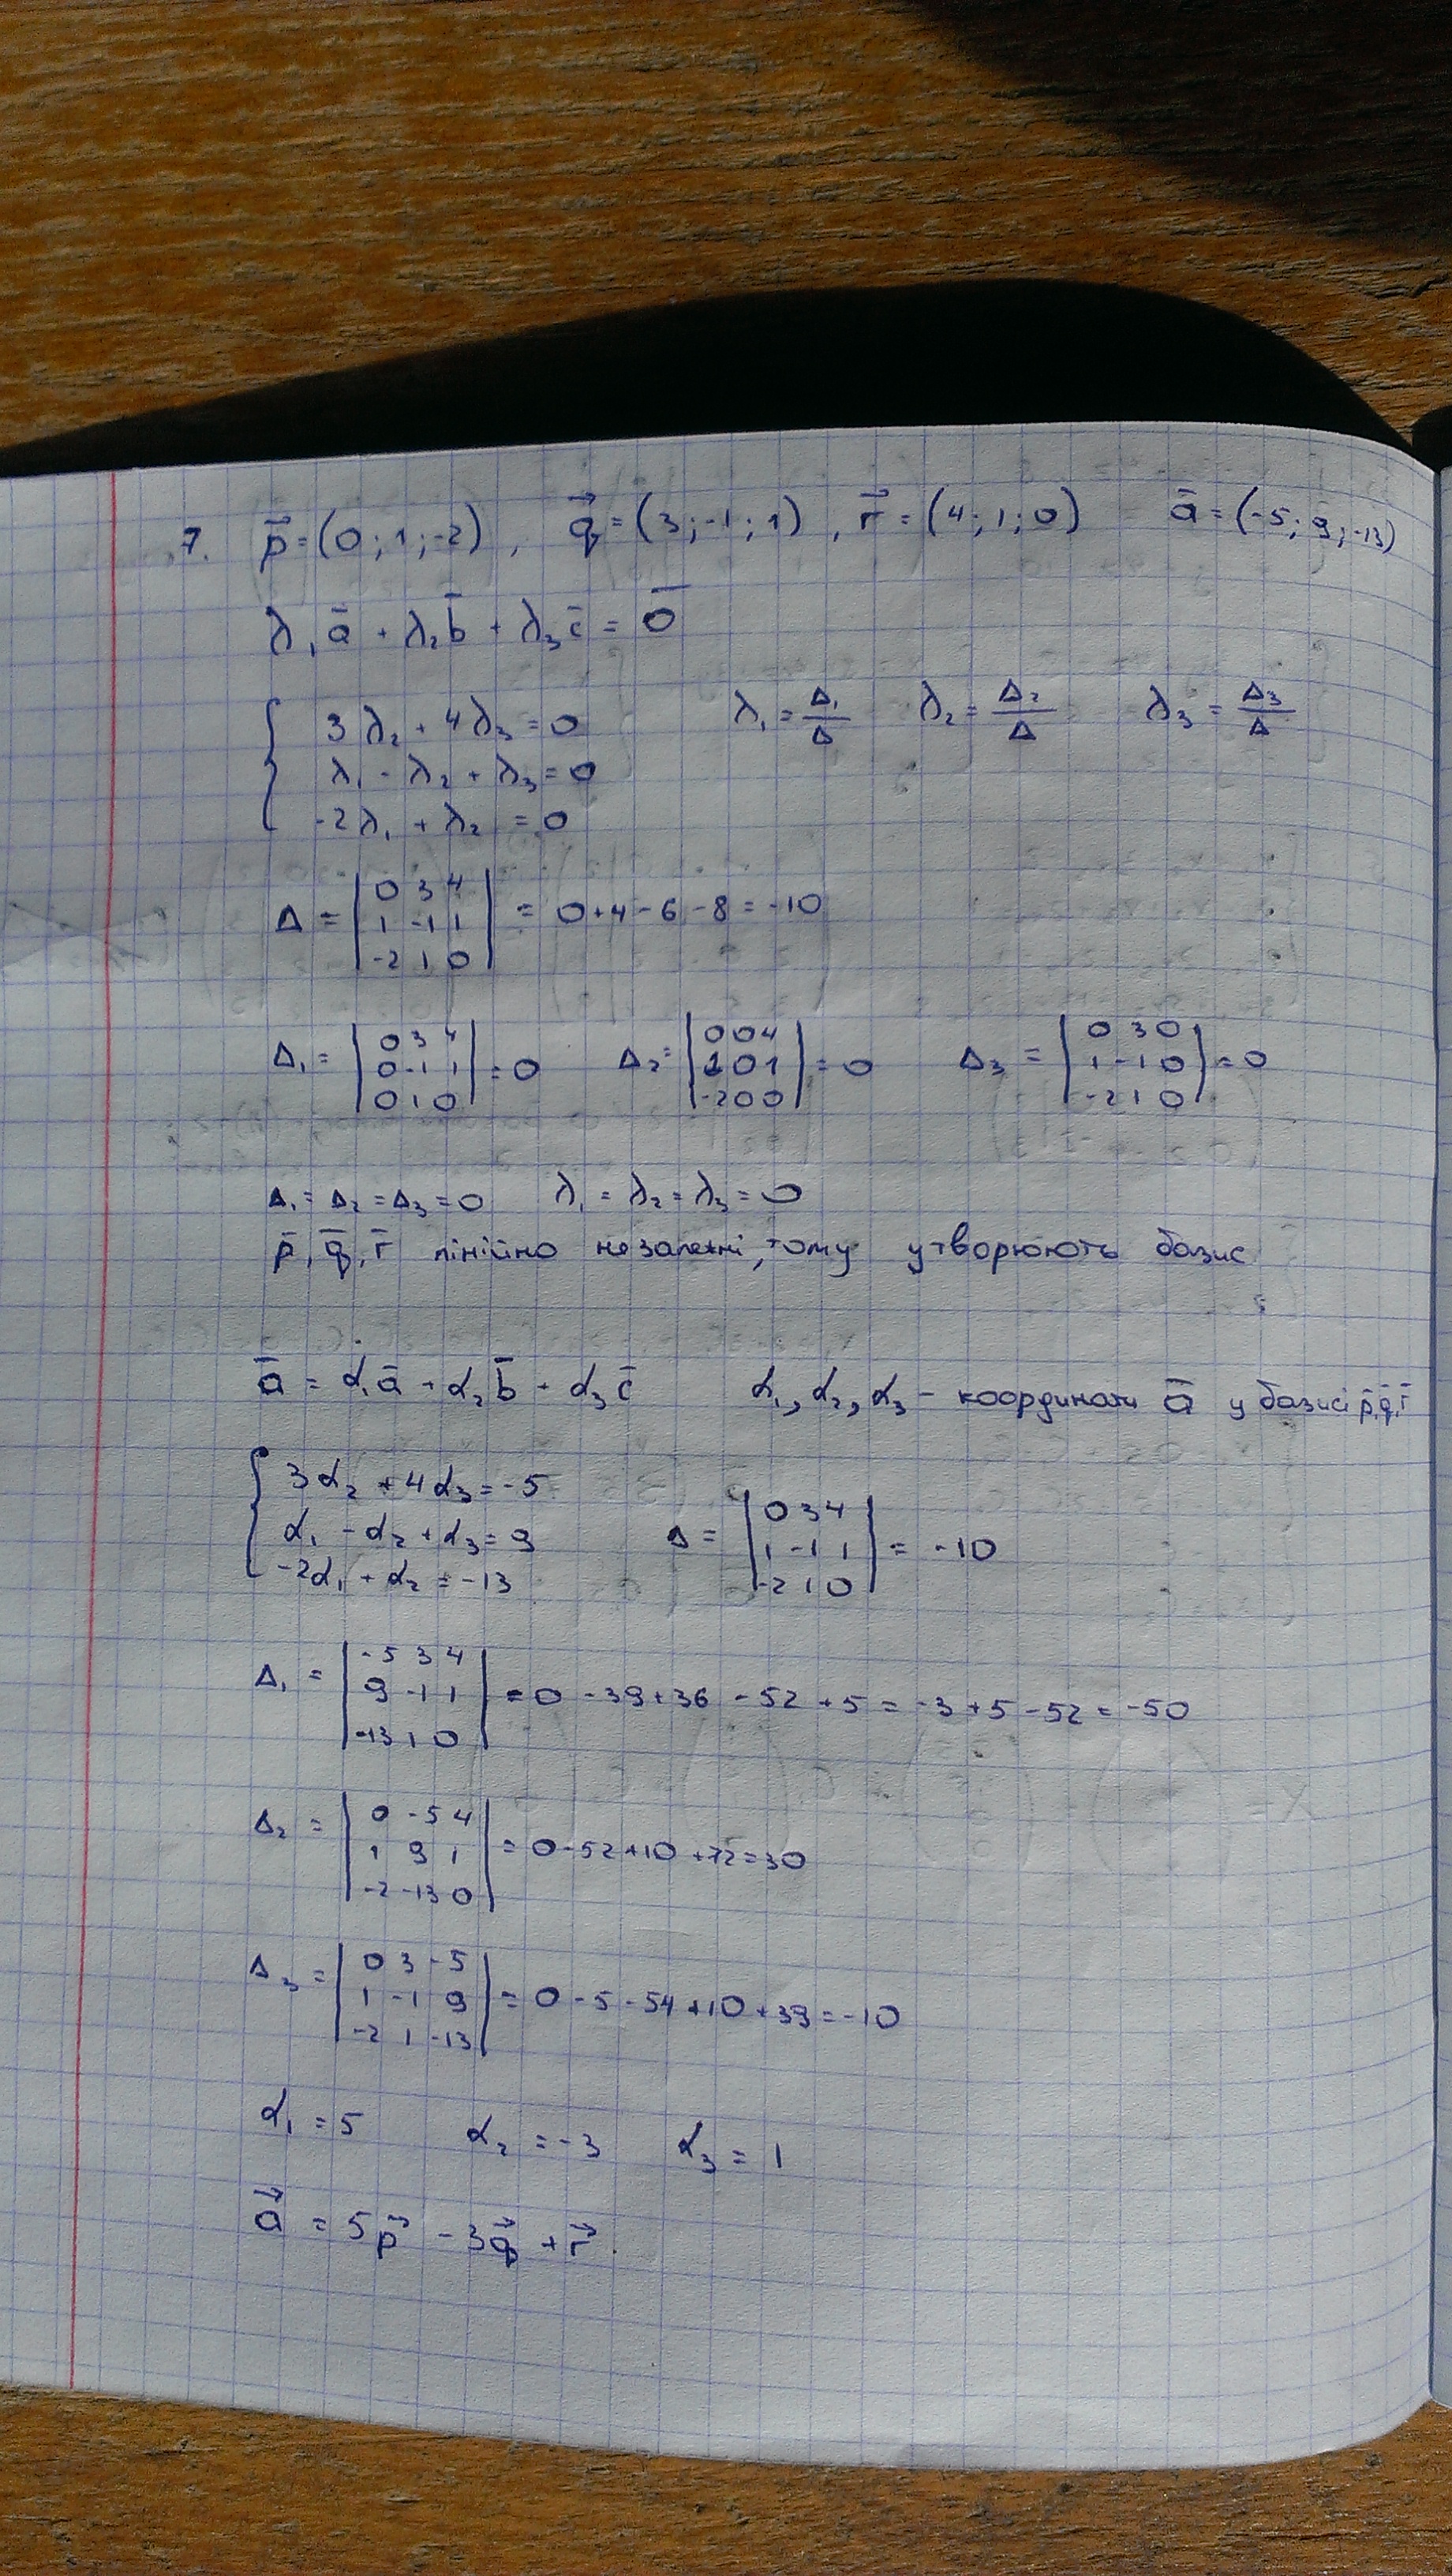 7. p⃗=(0;1;-2), q⃗=(3;-1;1), r⃗=(4;1;0) a̅=(-5;9;-13)
λ₁a̅+λ₂b̅+λ₃c̅=0̅
3λ₂+4λ₃=0 λ₁=Δ₁/Δ λ₂=Δ₂/Δ λ₃=Δ₃/Δ
λ₁-λ₂+λ₃=0
-2λ₁+λ₂=0
Δ=|0 3 4; 1 -1 1; -2 1 0|=0+4-6-8=-10
Δ₁=|0 3 4; 0 -1 1; 0 1 0|=0 Δ₂=|0 0 4; 1 0 1; -2 0 0|=0 Δ₃=|0 3 0; 1 -1 0; -2 1 0|=0
Δ₁=Δ₂=Δ₃=0 λ₁=λ₂=λ₃=0
p̅,q̅,r̅ лінійно незалежні, тому утворюють базис
a̅=α₁a̅+α₂b̅+α₃c̅ α₁,α₂,α₃ - координати a̅ у базисі p̅,q̅,r̅
3α₂+4α₃=-5
α₁-α₂+α₃=9 Δ=|0 3 4; 1 -1 1; -2 1 0|=-10
-2α₁+α₂=-13
Δ₁=|-5 3 4; 9 -1 1; -13 1 0|=0-39+36-52+5=-3+5-52=-50
Δ₂=|0 -5 4; 1 9 1; -2 -13 0|=0-52+10+72=30
Δ₃=|0 3 -5; 1 -1 9; -2 1 -13|=0-5-54+10+39=-10
α₁=5 α₂=-3 α₃=1
a⃗=5p⃗-3q⃗+r⃗.